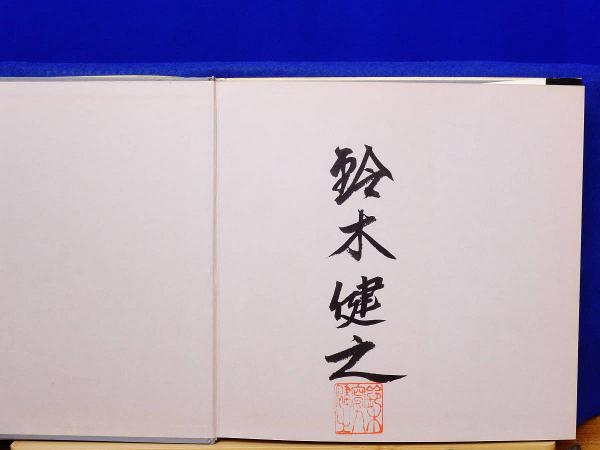 鈴木健之